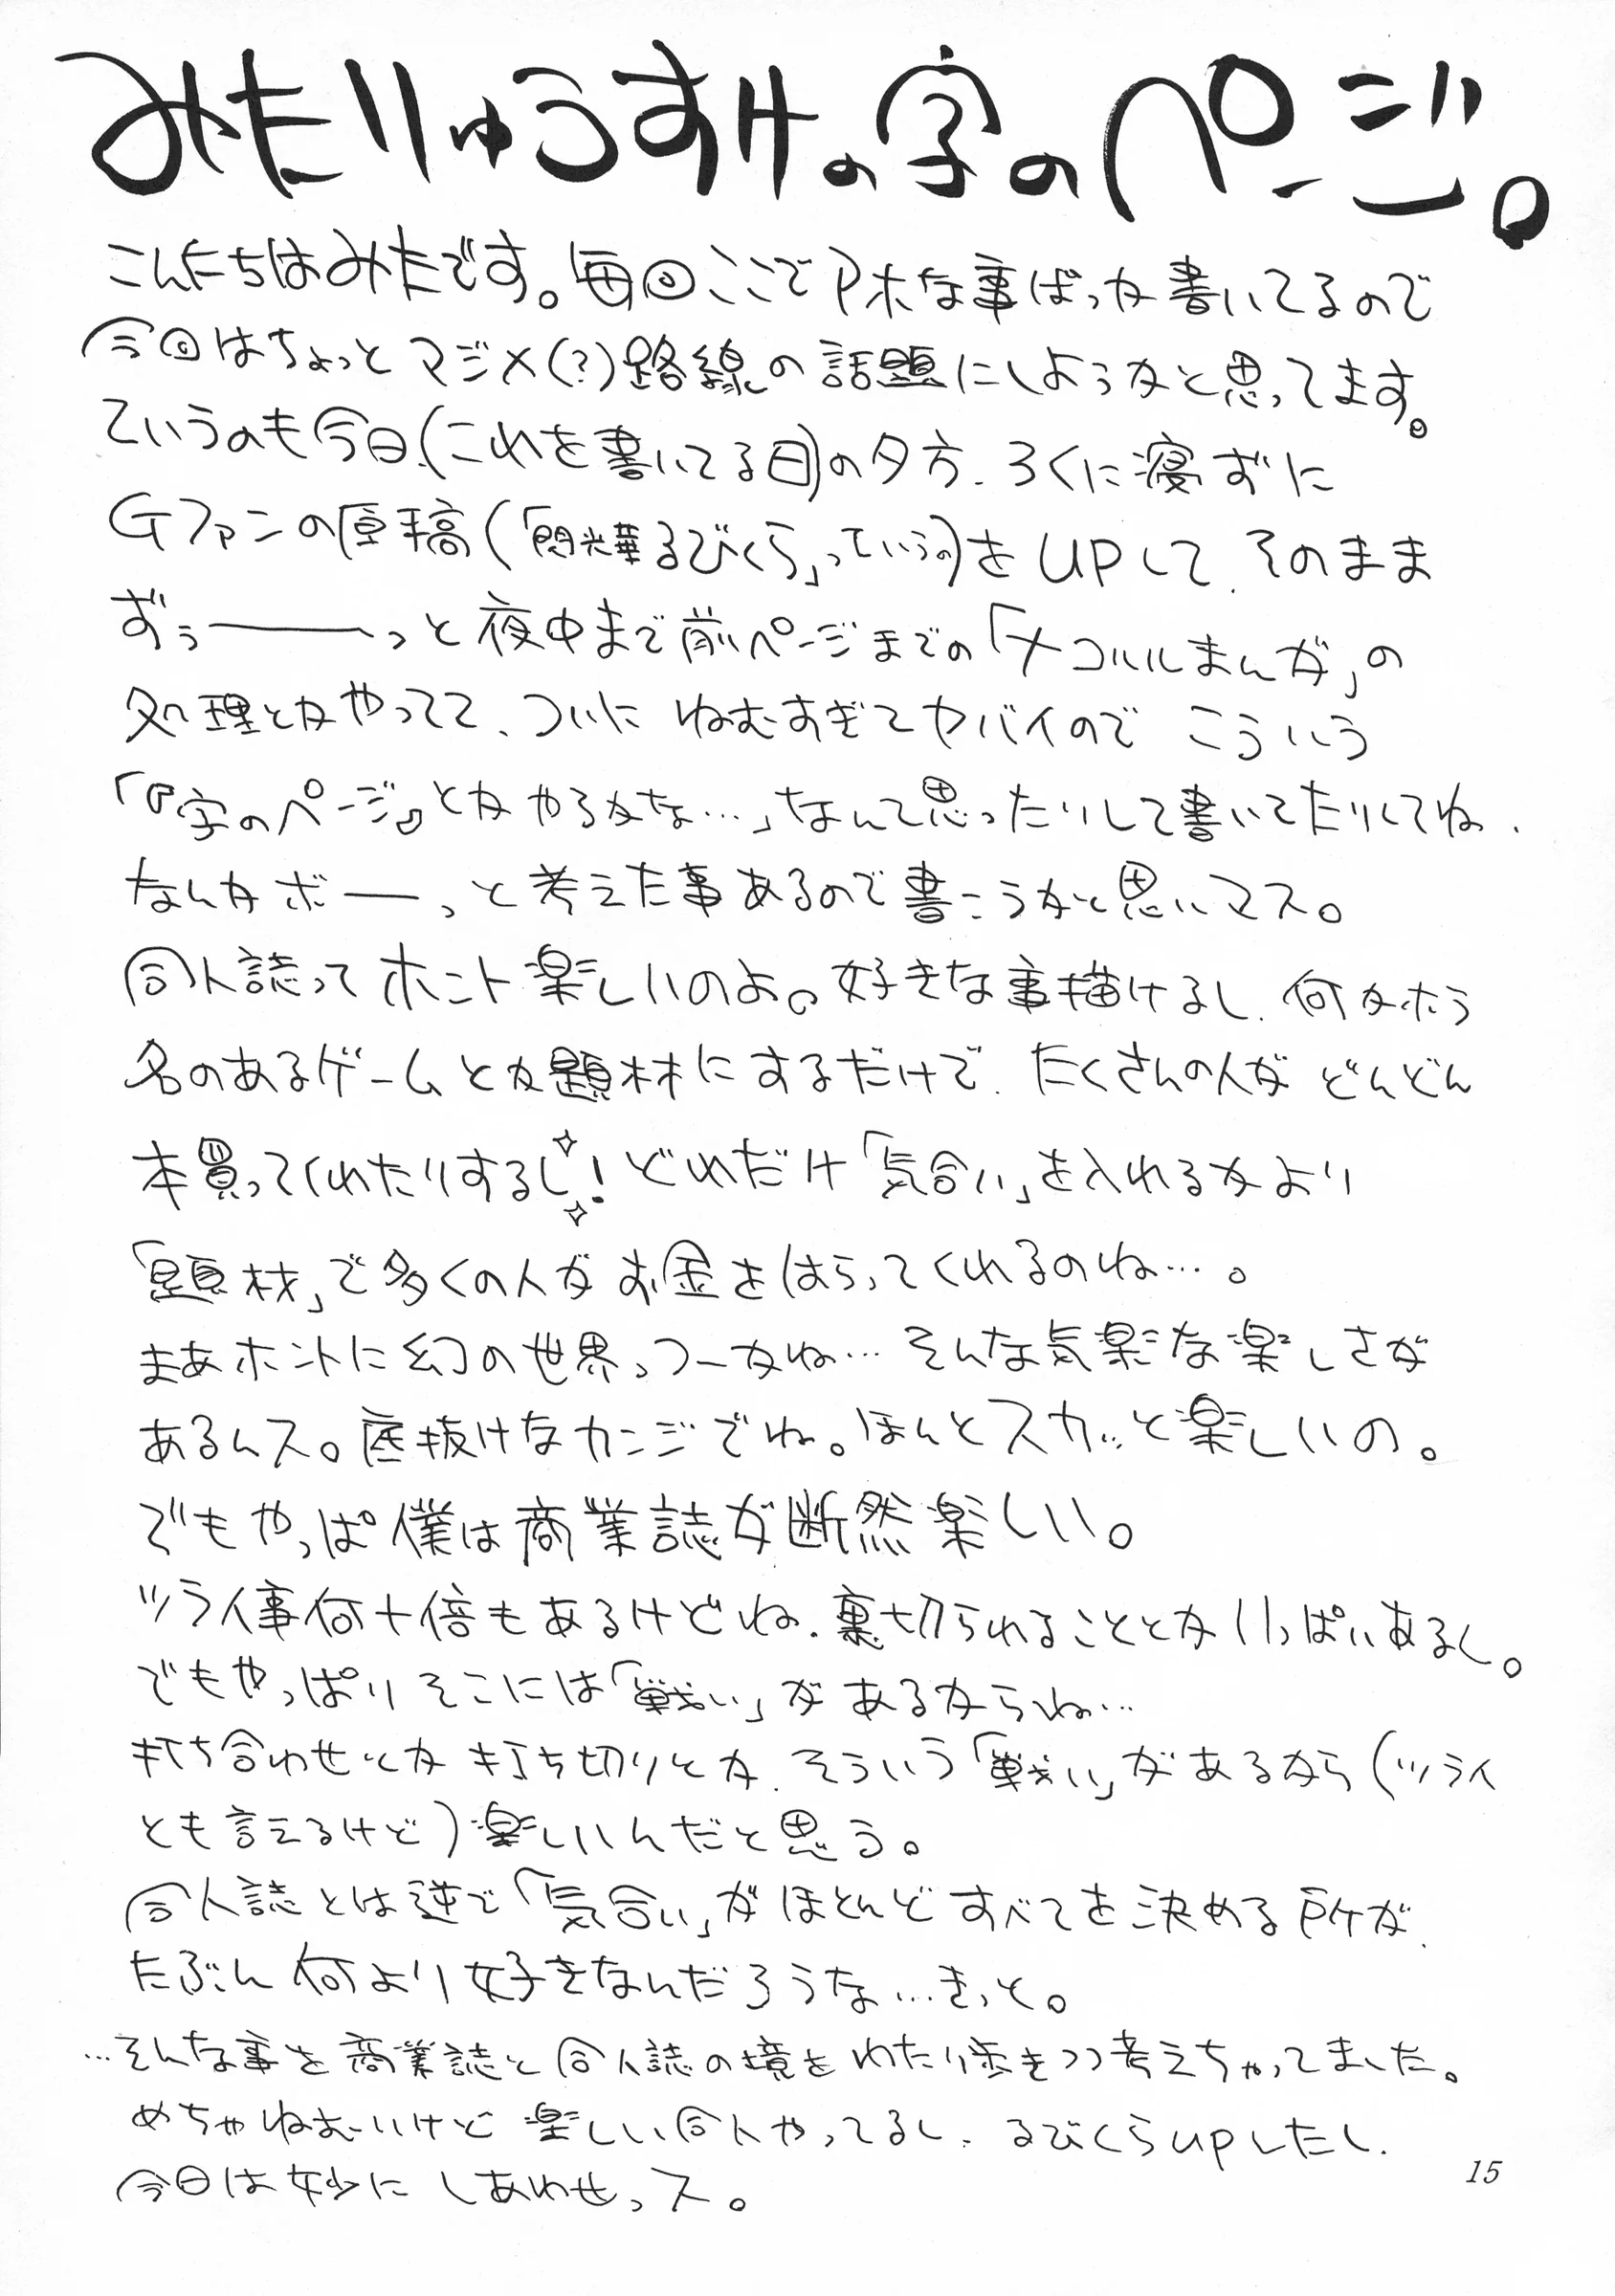 みたりゅうすけの字のページ。
こんにちはみたです。毎回ここでアホな事ばっか書いてるので
今回はちょっとマジメ(?)路線の話題にしようかと思ってます。
ていうのも今日(これを書いてる日)の夕方、ろくに寝ずに
Gファンの原稿(「閃光華るびくら」っていうの)をUPして、そのまま
ずぅーーーっと夜中まで前ページまでの「ナコルルまんが」の
処理とかやってて、ついにねむすぎてヤバイのでこういう
「『字のページ』とかやるかな…」なんて思ったりして書いてたりしてね、
なんかボーーっと考えた事あるので書こうかと思いマス。
同人誌ってホント楽しいのよ。好きな事描けるし、何かホラ
名のあるゲームとか題材にするだけで、たくさんの人がどんどん
本買ってくれたりするし!どれだけ「気合い」を入れるかより
「題材」で多くの人がお金をはらってくれるのね…。
まあホントに幻の世界っつーかね…そんな気楽な楽しさが
あるんス。底抜けなカンジでね。ほんとスカッと楽しいの。
でもやっぱ僕は商業誌が断然楽しい。
ツライ事何十倍もあるけどね、裏切られることとかいっぱいあるし。
でもやっぱりそこには「戦い」があるからね…
打ち合わせとか打ち切りとか、そういう「戦い」があるから(ツライ
とも言えるけど)楽しいんだと思う。
同人誌とは逆で「気合い」がほとんどすべてを決める所が、
たぶん何より好きなんだろうな…きっと。
…そんな事を商業誌と同人誌の境をわたり歩きつつ考えちゃってました。
めちゃねむいけど楽しい同人やってるし、るびくらupしたし、
今日は妙にしあわせっス。
15